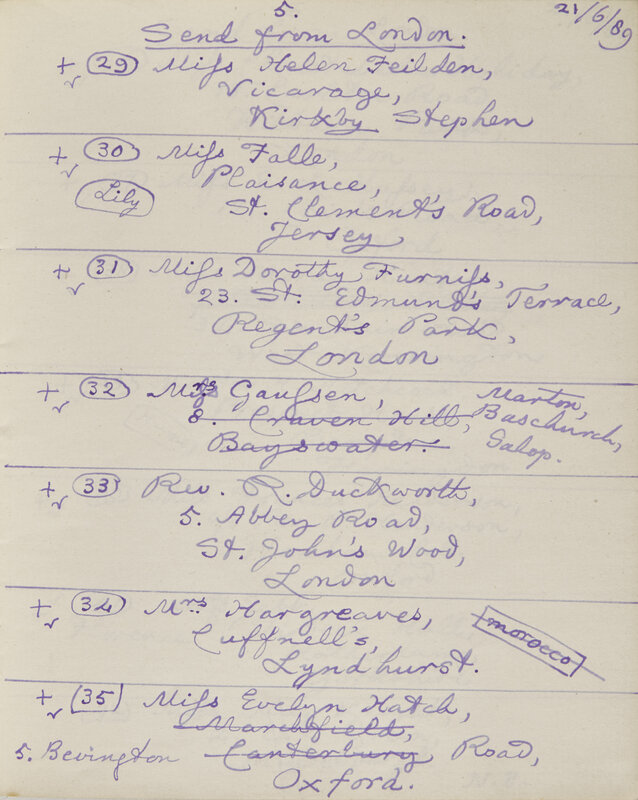 5.
21/6/89
Send from London.
+ 29 Miſs Helen Feilden,
Vicarage,
Kirkby Stephen
+ 30 Miſs Falle,
Lily
Plaisance,
St. Clement's Road,
Jersey
+ 31 Miſs Dorothy Furniſs,
23. St. Edmund's Terrace,
Regent's Park,
London
+ 32 Mrs Gauſsen,
8. Craven Hill,
Bayswater.
Marton,
Baschurch,
Salop.
+ 33 Rev. R. Duckworth,
5. Abbey Road,
St. John's Wood,
London
+ 34 Mrs Hargreaves,
Cuffnell's,
Lyndhurst.
morocco
+ 35 Miſs Evelyn Hatch,
Marchfield,
5. Bevington Canterbury Road,
Oxford.